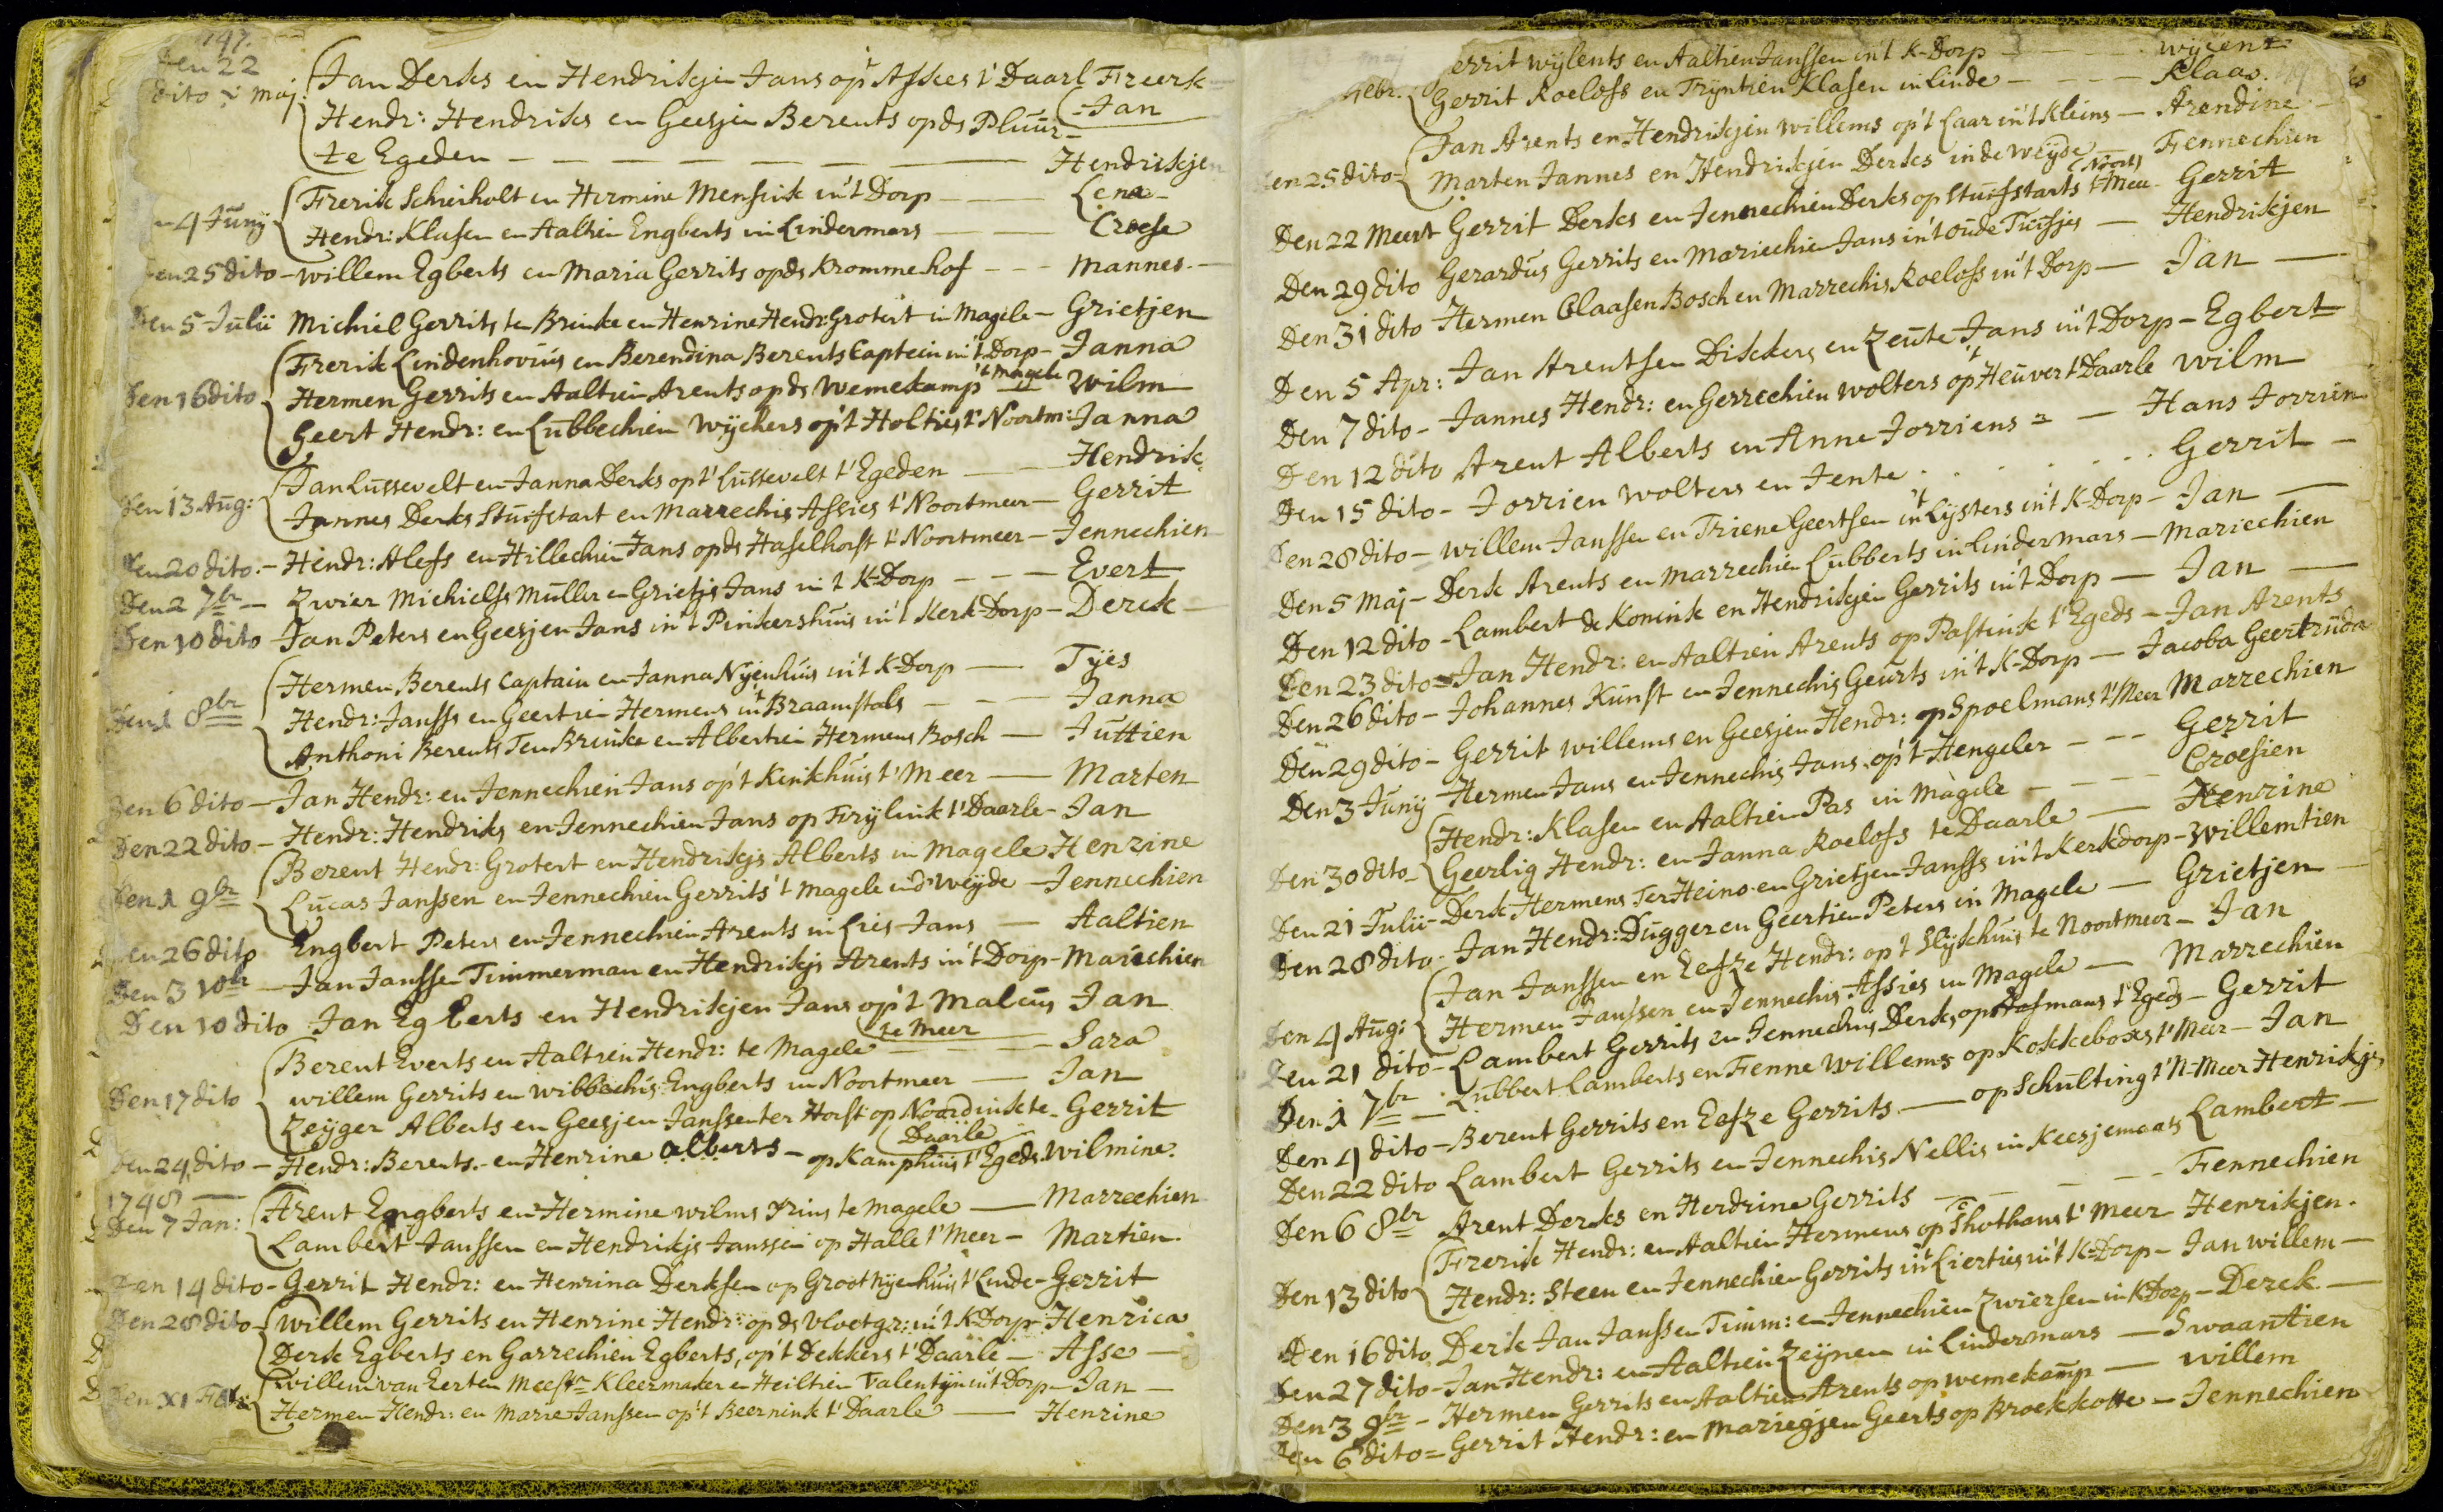 147.
Den 22
dito maj. Jan Derks en Hendrikjen Jans op Assies t' Daarl Freerk
Jan
Hendr: Hendriks en Geesjen Berents opds Pluür-
te Egeden — Hendrikjen
4 Juny Frerik Schierholt en Hermine Mensink in't Dorp — Lena
Hendr: Klasen en Aaltien Engberts in Lindermars — Croese
Den 25 dito - willem Egberts en Maria Gerrits opds Krommehof — mannes.
Den 5 Julii Michiel Gerrits, ten Brinke en Henrine Hendr: Grotert in Magele - Grietjen
Frerik Lindenhovius en Berendina Berents Captein in't Dorp - Janna
Den 16 dito Hermen Gerrits en Aaltien Arents opds Wemekamp 't magele wilm
Geert Hendr: en Lubbechien Wychers op't Holties t' Noortm: Janna
Jan Lussevelt en Janna Derks op t' Lussevelt t' Egeden — Hendrik
Den 13 Aug: Jannes Derks Stuifstart en Marrechis Assies t' Noortmeer - Gerrit
Den 20 dito. - Hendr: Alefs en Hillechien Jans opds Haselhorst t' Noortmeer - Jennechien
Den 2 7br - Zwier Michiels Muller en Grietjs Jans in t K-Dorp — Evert
Den 10 dito Jan Peters en Geesjen Jans in't Pinkershuis in't Kerk-Dorp - Derck
Hermen Berents Captain en Janna Nyenhuis in't K-Dorp — Tyes
Den 1 8br Hendr: Janss en Geertien Hermens in't Braamstals — Janna
Anthoni Berents Ten Brinke en Albertien Hermens Bosch — Juttien
Den 6 dito - Jan Hendr: en Jennechien Jans op't Kinkhuis t' Meer — Marten
Den 22 dito - Hendr: Hendriks en Jennechien Jans op Frylink t' Daarle - Jan
Berent Hendr: Grotert en Hendrikjs Alberts in Magele Henrine
Den 1 9br Lucas Janssen en Jennechien Gerrits 't magele ind' Weyde - Jennechien
Den 26 dito Engbert Peters en Jennechien Arents in Lies-Jans — Aaltien
Den 3 10br - Jan Janssen Timmerman en Hendrikjs Arents in't Dorp - Mariechien
Den 10 dito Jan Egberts en Hendrikjen Jans op't Malcus Jan
te Meer
Berent Everts en Aaltien Hendr: te Magele — Sara
Den 17 dito willem Gerrits en Wibbechis Engberts in Noortmeer — Jan
Zeyger Alberts en Geesjen Janssen ter Horst op Noordink te - Gerrit
Daarle
Den 24 dito - Hendr: Berents. en Henrine alberts - op Kamphuis t' Egeds. Wilmine.
1748
Den 7 Jan: Arent Engberts en Hermine wilms Frius te magele — Marrechien
Lambert Janssen en Hendrikjs Janssen op Halle t' Meer - Martien.
Den 14 dito - Gerrit Hendr: en Henrina Derksen op Groot Nyenhuis t' Linde - Gerrit
Den 28 dito willem Gerrits en Henrine Hendr: opds Vloetgr: in't K-Dorp - Henrica
Derk Egberts en Garrechien Egberts, op't Dekkers t' Daarle - Asse
Den XI Feb: willem van Eerten Meestr Kleermaker en Heiltien Valentyn in't Dorp - Jan
Hermen Hendr: en Marie Janssen op't Beernink t' Daarle — Henrine
errit wylents en Aaltien Janssen in't K-Dorp — wycent
Febr. Gerrit Roelofs en Tryntien Klasen in Linde — Klaas.
Jan Arents en Hendrikjen willems op't Laar in't Kleins - Arendine
Den 25 dito Marten Jannes en Hendrikjen Derks inde Weyde — Fennechien
Noort
Den 22 Meert Gerrit Derks en Jennechien Derks op Stuifstarts t' Mee - Gerrit
Den 29 dito Gerardus Gerrits en Mariechien Jans in't oude — Hendrikjen
Den 31 dito Hermen Claasen Bosch en Marrechis Roelofs in't Dorp - Jan
Den 5 Apr: Jan Arentsen Diskkers en Zeute Jans in't Dorp - Egbert
Den 7 dito - Jannes Hendr: en Gerrechien wolters op't Heuver t' Daarle wilm
Den 12 dito Arent Alberts en Anne Jorriens — Hans Jorrien
Den 15 dito - Jorrien Wolters en Jente . . . . Gerrit
Den 28 dito - willem Janssen en Triene Geertsen in't Lysters in't K-Dorp - Jan
Den 5 Maj - Derk Arents en Marrechien Lubberts in Lindermars - Mariechien
Den 12 dito - Lambert de Konink en Hendrikjen Gerrits in't Dorp - Jan
Den 23 dito - Jan Hendr: en Aaltien Arents op Pastink t' Egeds - Jan Arents
Den 26 dito - Johannes Kunst en Jennechis Geurts in't K-Dorp - Jacoba Geertruda
Den 29 dito - Gerrit willems en Geesjen Hendr: op Spoelmans t' Meer Marrechien
Den 3 Juny Hermen Jans en Jennechis Jans. op't Hengeler — Gerrit
Hendr: Klasen en Aaltien Pas in Magele — Croesien
Den 30 dito Geerlig Hendr: en Janna Roelofs te Daarle — Henrine
Den 21 Julii - Derk Hermens Ter Heino en Grietjen Janss in't Kerkdorp - Willemtien
Den 28 dito. Jan Hendr: Dugger en Geertien Peters in Magele - Grietjen
Jan Janssen en Eefze Hendr: op 't Slyckhuis te Noortmeer - Jan
Den 4 Aug: Hermen Janssen en Jennechis Assies in Magele — Marrechien
Den 21 dito - Lambert Gerrits en Jennechis Derks, op Hofmans t' Egeds - Gerrit
Den 1 7br - Lubbert Lamberts en Fenne Willems op Kokkeboers t' Meer - Jan
Den 4 dito - Berent Gerrits en Eefze Gerrits — op Schulting t' N-Meer Henrikjs
Den 22 dito Lambert Gerrits en Jennechis Nellis in Keesjemaats Lambert
Den 6 8br Arent Derks en Herdrine Gerrits — Fennechien
Frerik Hendr: en Aaltien Hermens op Shothans t' Meer Henrikjen.
Den 13 dito Hendr: Steen en Jennechien Gerrits in't Lierties in't K-Dorp - Jan willem
Den 16 dito Derk Jan Janssen Timm: en Jennechien Zwiersen in K Dorp - Derck
Den 27 dito - Jan Hendr: en Aaltien Zeynen in Lindermars — Swaantien
Den 3 9br - Hermen Gerrits en Aaltien Arents op wemekamp — willem
Den 6 dito = Gerrit Hendr: en Mariegjen Geerts op Broekkotte - Jennechien